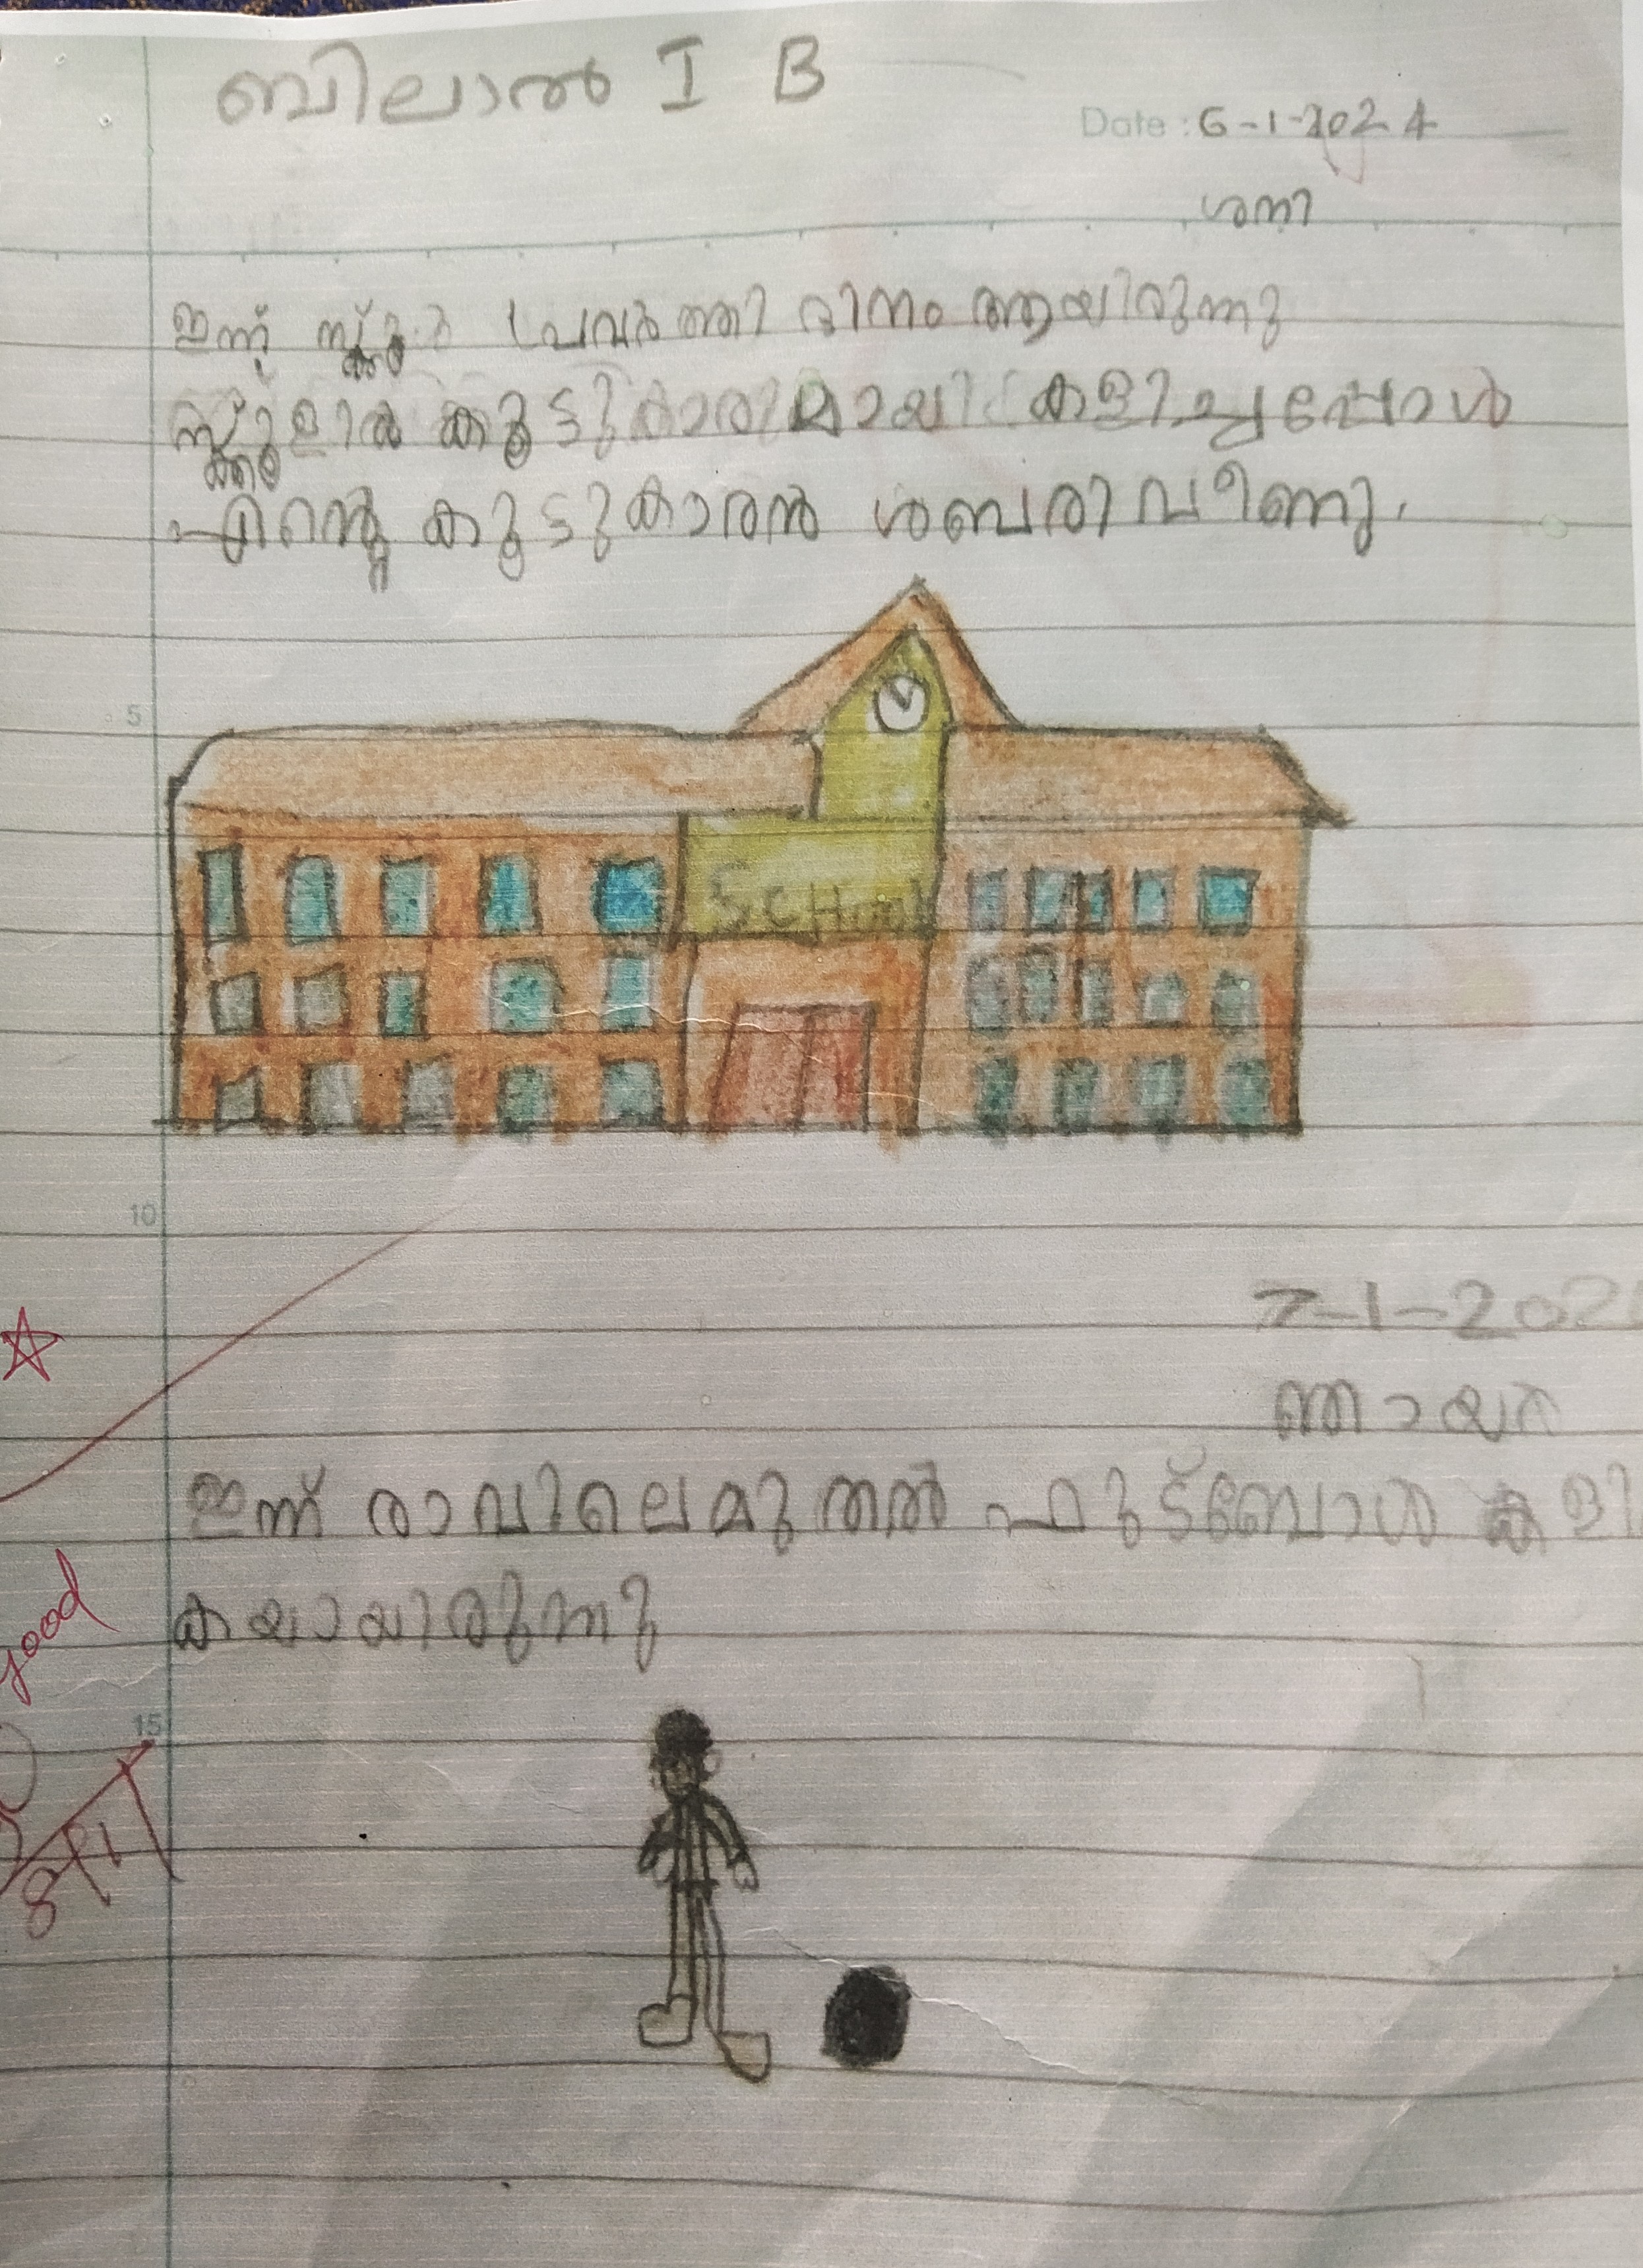 ബിലാൽ I B
Date : 6-1-2024
ശനി
ഇന്ന് സ്കൂൾ പ്രവർത്തി ദിനം ആയിരുന്നു
സ്കൂളിൽ കൂട്ടുകാരുമായി കളിച്ചപ്പോൾ
എന്റെ കൂട്ടുകാരൻ ശബരി വീണു.
5
SCHool
10
7-1-202
ഞായർ
ഇന്ന് രാവിലെമുതൽ ഫുട്ബോൾ കളി
കയായിരുന്നു
good
15
8/1